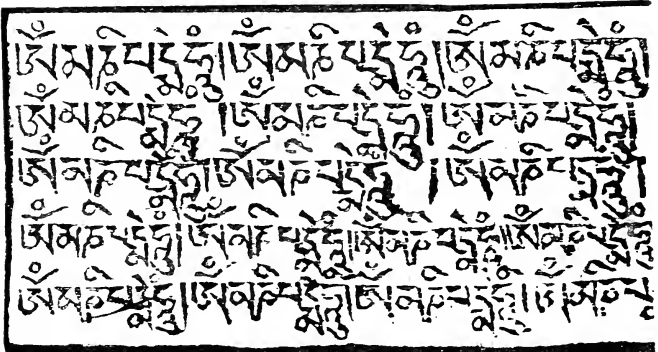 ཨོཾམཎིཔདྨེཧཱུྃ།ཨོཾམཎིཔདྨེཧཱུྃ།ཨོཾམཎིཔདྨེཧཱུྃ།
ཨོཾམཎིཔདྨེཧཱུྃ།ཨོཾམཎིཔདྨེཧཱུྃ།ཨོཾམཎིཔདྨེཧཱུྃ།
ཨོཾམཎིཔདྨེཧཱུྃ།ཨོཾམཎིཔདྨེཧཱུྃ།ཨོཾམཎིཔདྨེཧཱུྃ།
ཨོཾམཎིཔདྨེཧཱུྃ།ཨོཾམཎིཔདྨེཧཱུྃ།ཨོཾམཎིཔདྨེཧཱུྃ།ཨོཾམཎིཔདྨེཧཱུྃ
ཨོཾམཎིཔདྨེཧཱུྃ།ཨོཾམཎིཔདྨེཧཱུྃ།ཨོཾམཎིཔདྨེཧཱུྃ།ཨོཾམཎིཔ